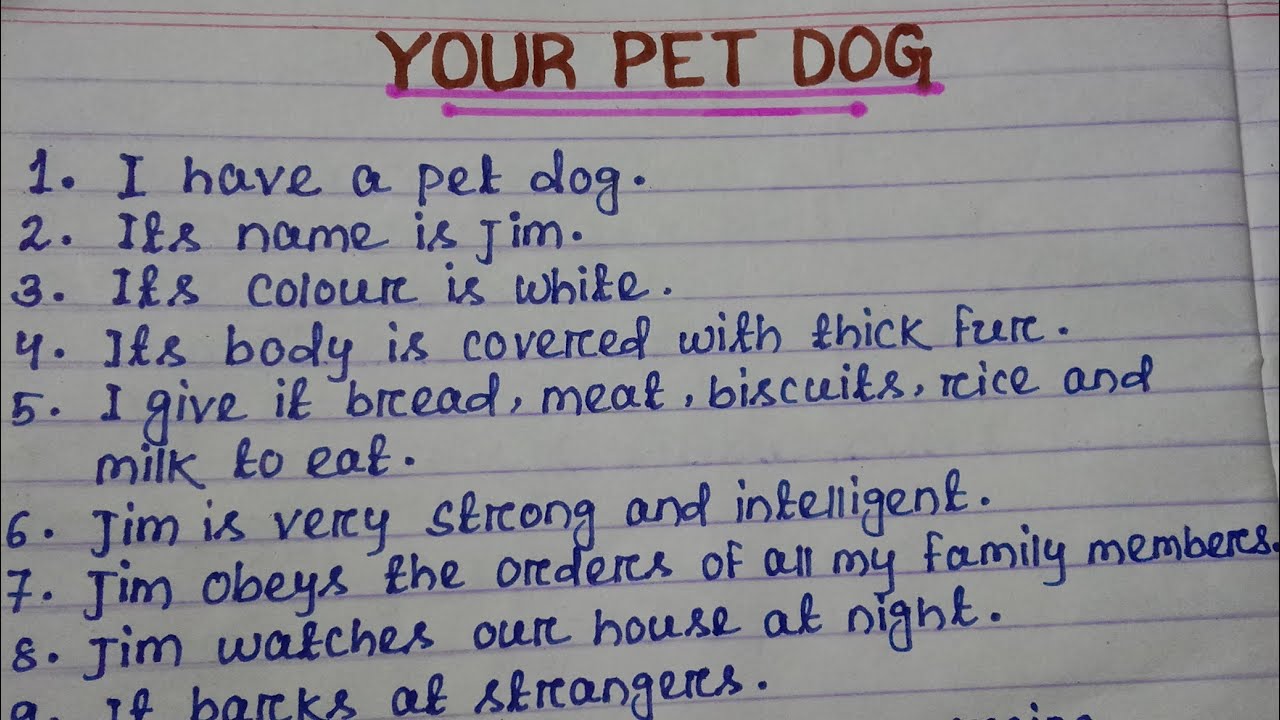 YOUR PET DOG
1. I have a pet dog.
2. Its name is Jim.
3. Its colour is white.
4. Its body is covered with thick fur.
5. I give it bread, meat, biscuits, rice and
milk to eat.
6. Jim is very strong and intelligent.
7. Jim obeys the orders of all my family members.
8. Jim watches our house at night.
9. It barks at strangers.